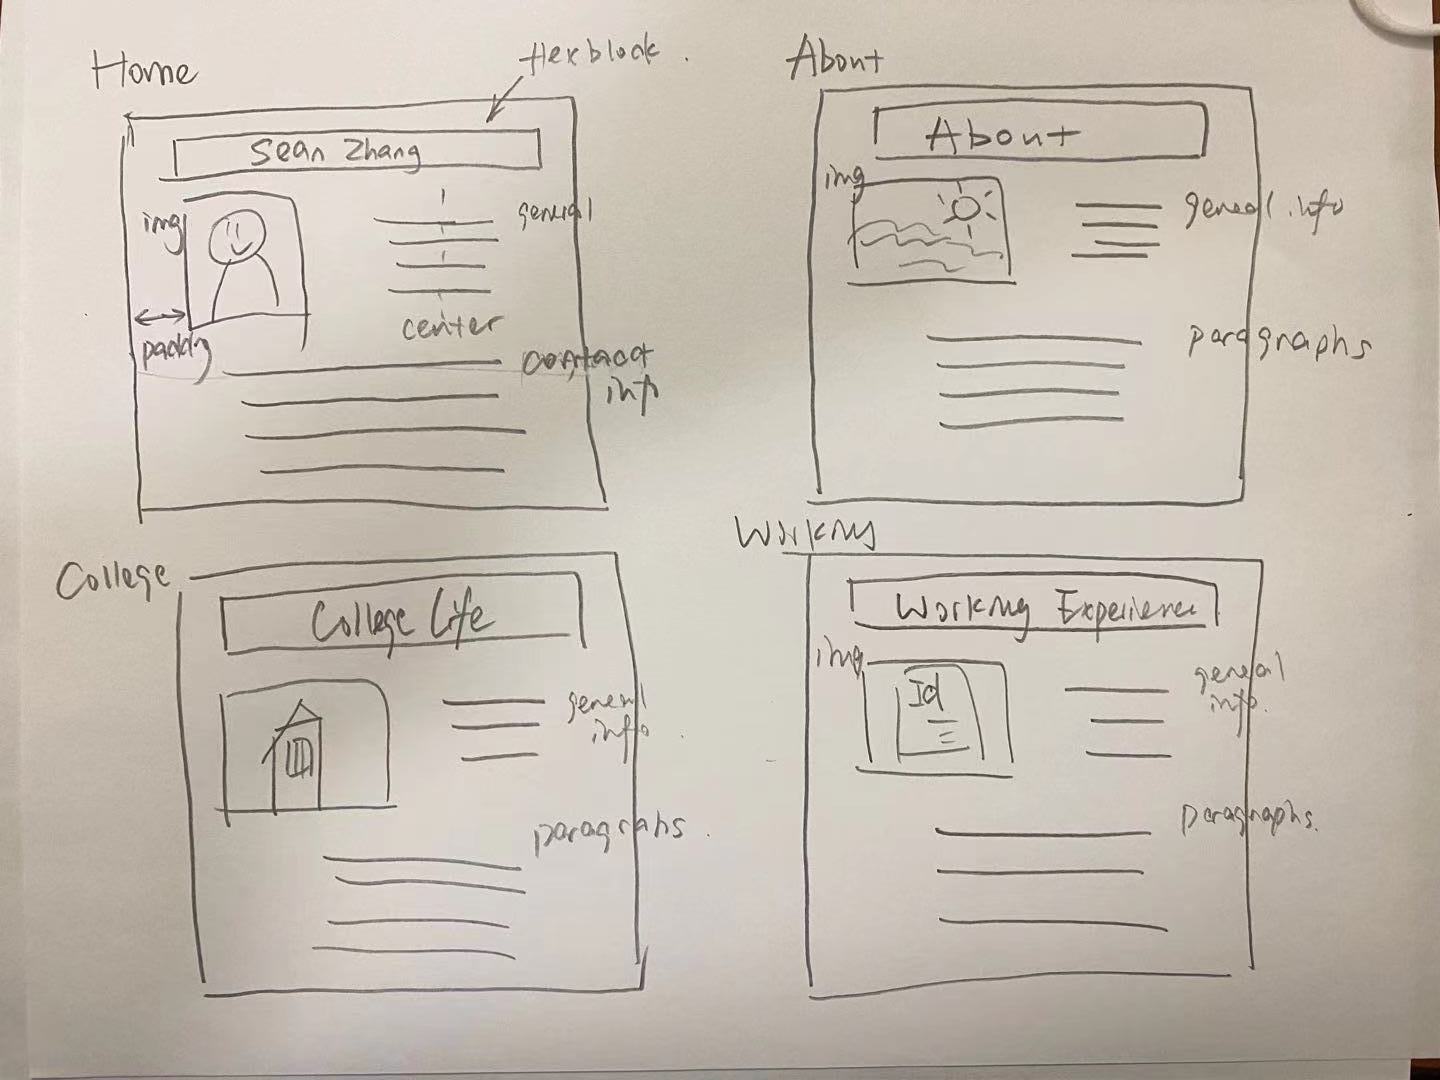 Home
flexblock.
Sean Zhang
img
general
center
padding
contact
info
About
About
img
general info
paragraphs
College
College Life
general
info.
paragrahs.
Working
Working Experience
img
Id
general
info.
paragraphs.